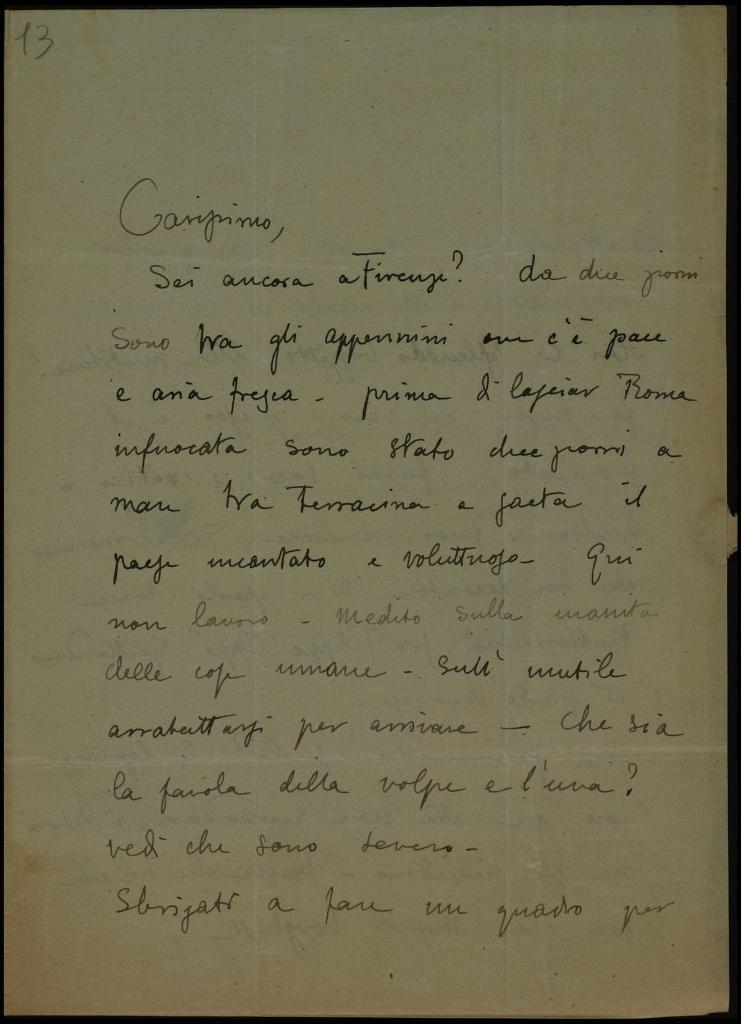 13
Carissimo,
Sei ancora a Firenze? da due giorni
sono tra gli appennini ove c'è pace
e aria fresca - prima di lasciar Roma
infuocata sono stato due giorni a
mare tra Terracina e gaeta il
paese incantato e voluttuoso - Qui
non lavoro - Medito sulla inanità
delle cose umane - Sull' inutile
arrabattarsi per arrivare - Che sia
la favola della volpe e l'uva?
vedi che sono severo -
Sbrigati a fare un quadro per